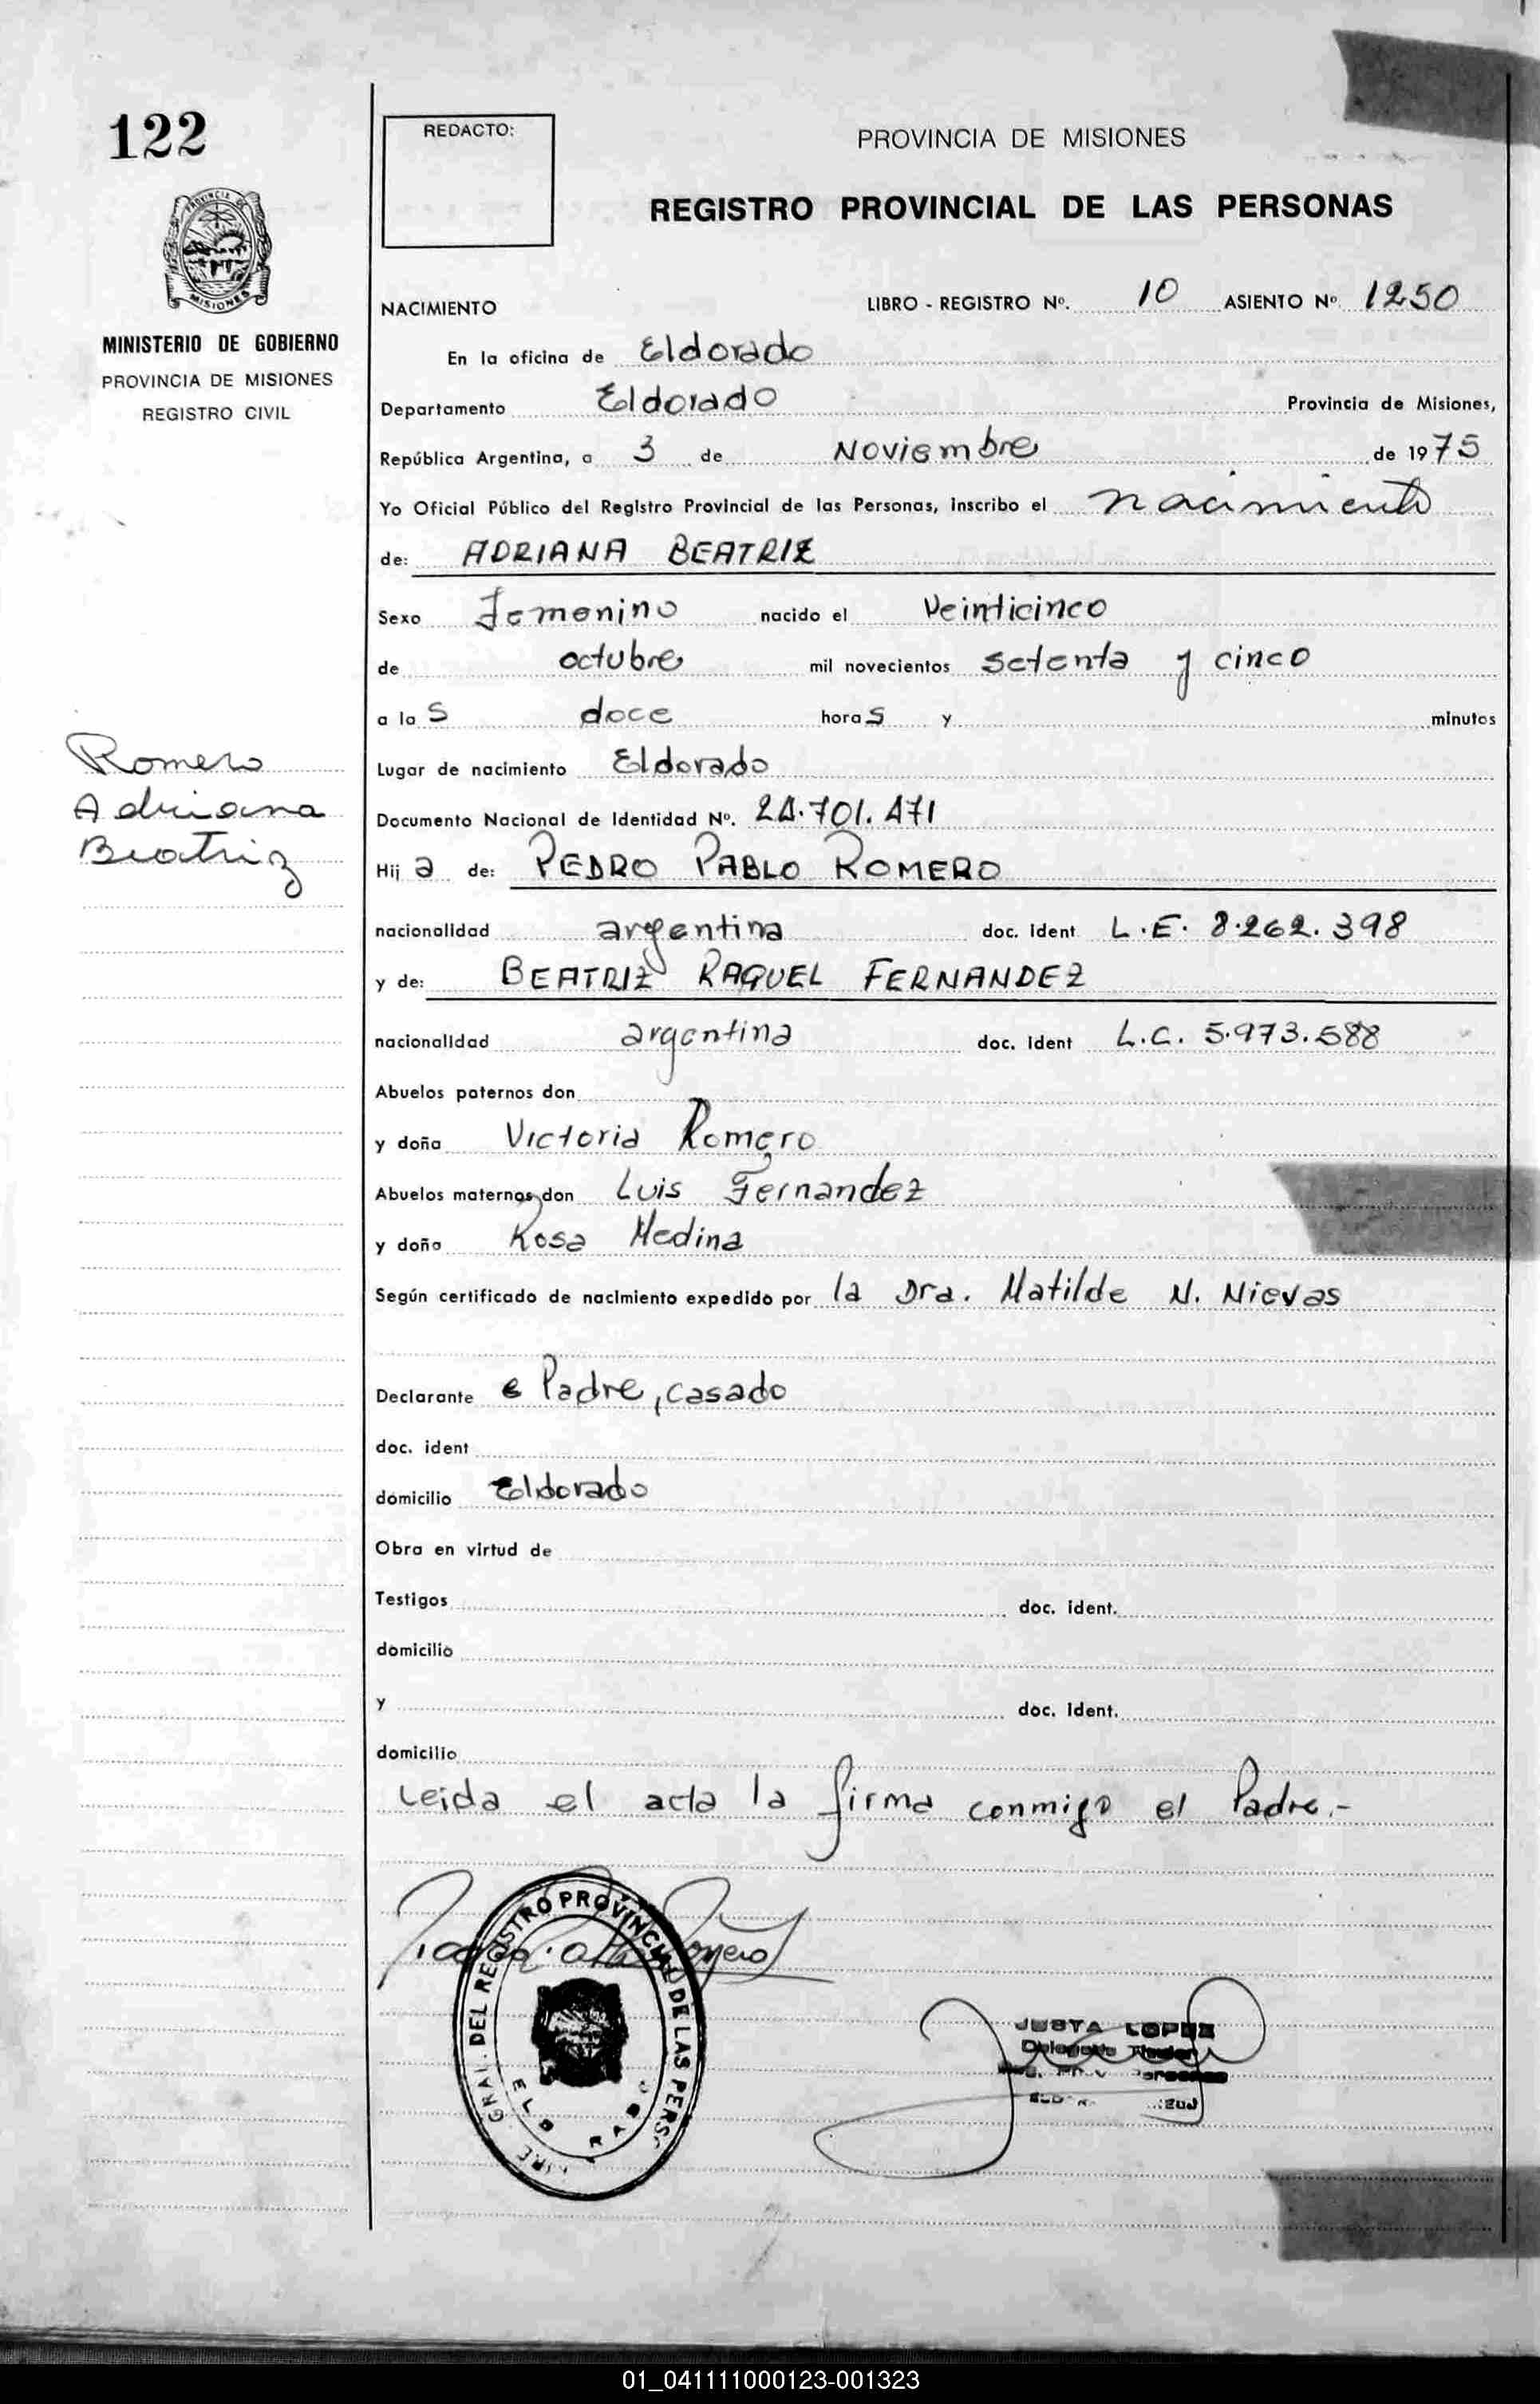 122
REDACTO:
PROVINCIA DE MISIONES
REGISTRO PROVINCIAL DE LAS PERSONAS
PROVINCIA DE
MISIONES
MINISTERIO DE GOBIERNO
PROVINCIA DE MISIONES
REGISTRO CIVIL
NACIMIENTO LIBRO - REGISTRO Nº. 10 ASIENTO Nº. 1250
En la oficina de Eldorado
Departamento Eldorado Provincia de Misiones,
República Argentina, a 3 de Noviembre de 1975
Yo Oficial Público del Registro Provincial de las Personas, inscribo el nacimiento
de: ADRIANA BEATRIZ
Sexo Femenino nacido el Veinticinco
de octubre mil novecientos setenta y cinco
a las doce horas y minutos
Romero
Adriana
Beatriz
Lugar de nacimiento Eldorado
Documento Nacional de Identidad Nº. 24.701.471
Hija de: PEDRO PABLO ROMERO
nacionalidad argentina doc. ident L.E. 8.262.398
y de: BEATRIZ RAQUEL FERNANDEZ
nacionalidad argentina doc. ident L.C. 5.973.588
Abuelos paternos don
y doña Victoria Romero
Abuelos maternos don Luis Fernandez
y doña Rosa Medina
Según certificado de nacimiento expedido por la Dra. Matilde N. Nievas
Declarante Padre, casado
doc. ident
domicilio Eldorado
Obra en virtud de
Testigos doc. ident.
domicilio
y doc. ident.
domicilio
Leida el acta la firma conmigo el Padre.-
GRAL. DEL REGISTRO PROVINCIAL DE LAS PERS
JUSTA LOPEZ
Delegada Titular
01_041111000123-001323